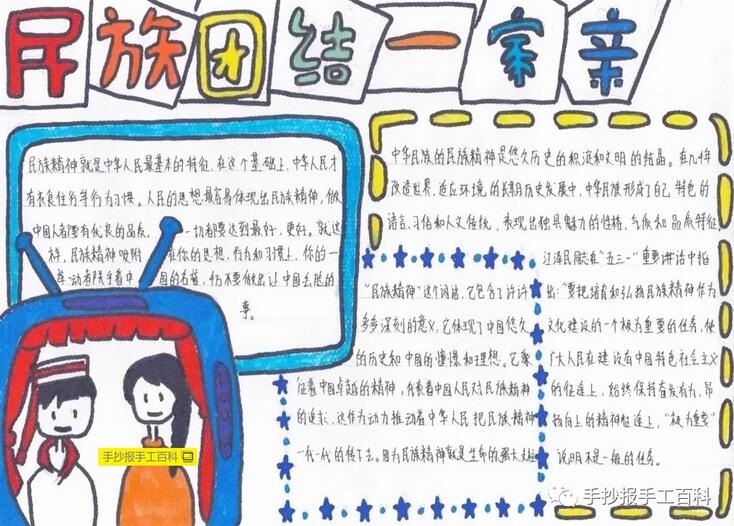 民族团结一家亲
民族精神就是中华人民最基本的特征。在这个基础上,中华人民才
有衣食住行等行为习惯。人民的思想最容易体现出民族精神,做
中国人都要有优良的品质。一切都要达到最好,更好。就这
样,民族精神吸附在你的思想,行为和习惯上,你的一
举一动都关乎着中国的名誉,仍不要做出让中国丢脸的
事。
中华民族的民族精神是悠久历史的积淀和文明的结晶。在几千年
改造世界,适应环境的长期历史发展中,中华民族形成了自己特色的
语言、习俗和人文传统,表现出独具魅力的性格、气质和品质特征
“民族精神”这个词语,它包含了许许
多多深刻的意义,它体现了中国悠久
的历史和中国的憧憬和理想。它象
征着中国卓越的精神,代表着中国人民对民族精神
的追求,这作为动力推动着中华人民把民族精神
一代一代的传下去。因为民族精神就是生命的强大支柱
江泽民同志在“五三一”重要讲话中指
出:“要把培育和弘扬民族精神作为
文化建设的一个极为重要的任务,使
广大人民在建设有中国特色社会主义
的征途上,始终保持奋发有为,昂
扬向上的精神征途上,“极为重要”
说明不是一般的任务。
手抄报手工百科
手抄报手工百科